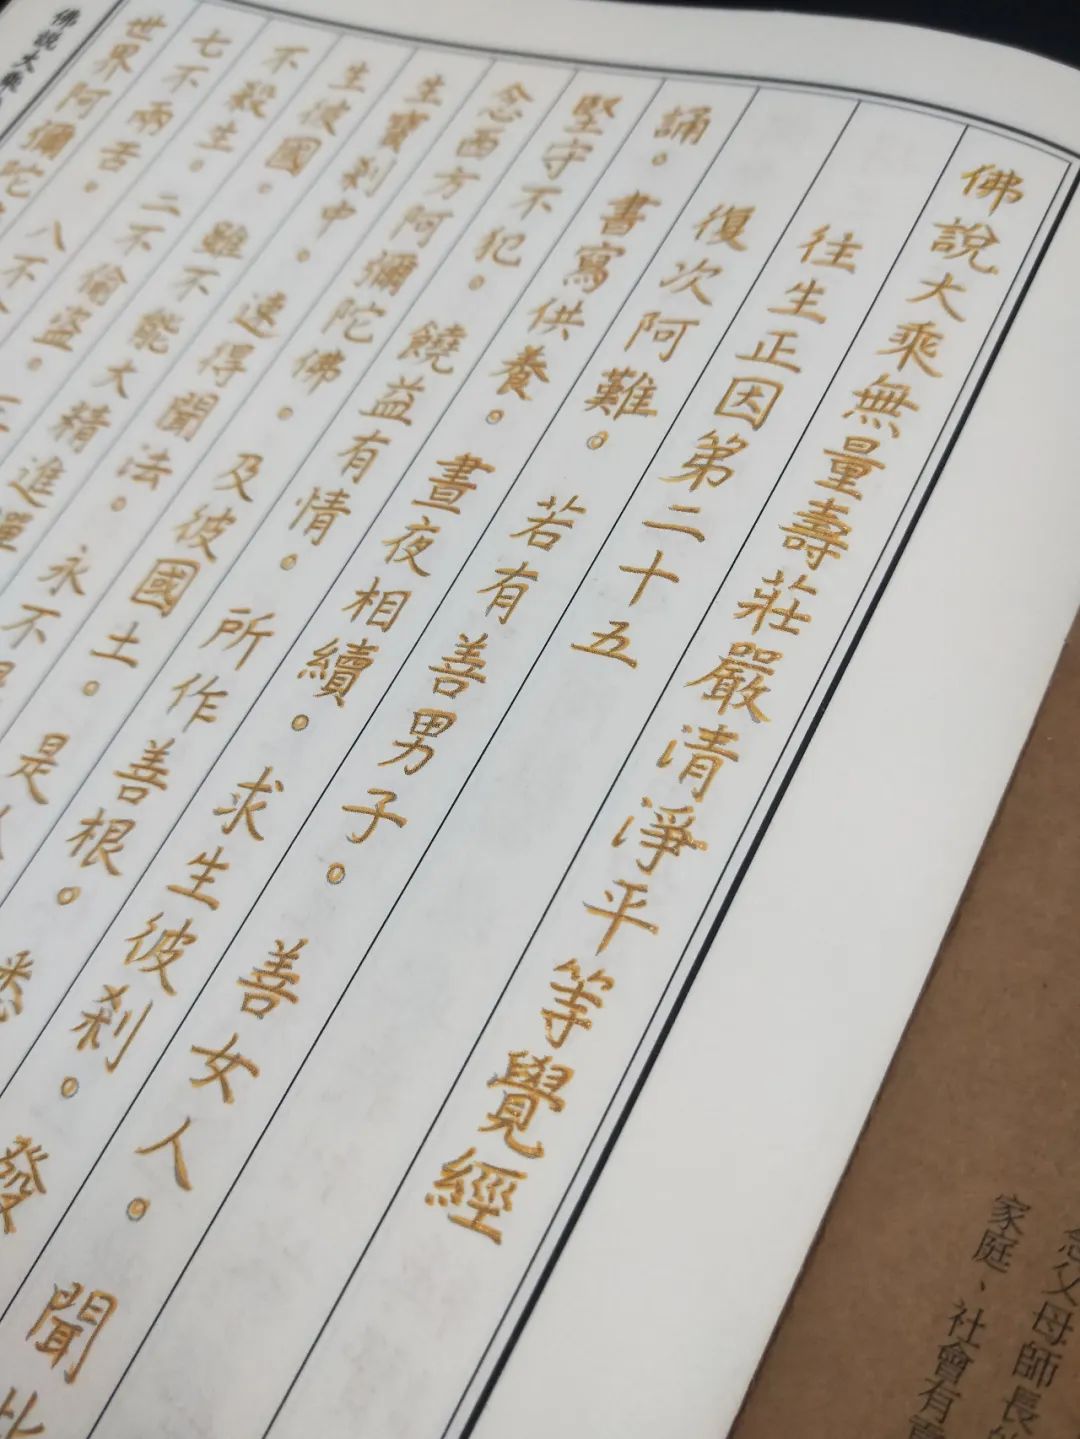 佛說大乘無量壽莊嚴清淨平等覺經
往生正因第二十五
復次阿難。若有善男子。善女人。聞此
誦。書寫供養。晝夜相續。求生彼剎。發
堅守不犯。饒益有情。所作善根。悉
念西方阿彌陀佛。及彼國土。是
生寶剎中。速得聞法。永不
生彼國。雖不能大精進禪
不殺生。二不偷盜。
七不兩舌。八不
世界阿彌陀
佛說大乘
念父母師長
家庭、社會有